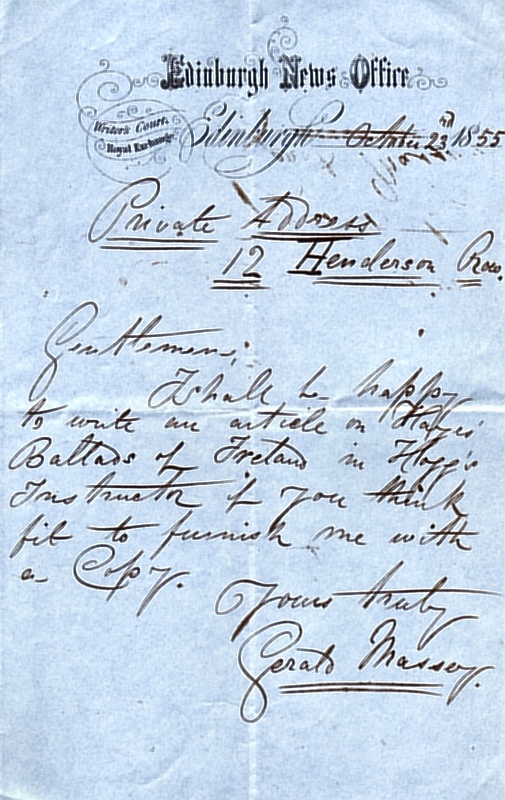 Edinburgh News Office
Writer's Court,
Royal Exchange
Edinburgh October 23rd 1855
Private Address
12 Henderson Row.
Gentlemen,
I shall be happy
to write an article on Hayes'
Ballads of Ireland in Hogg's
Instructor if you think
fit to furnish me with
a Copy.
Yours truly
Gerald Massey.